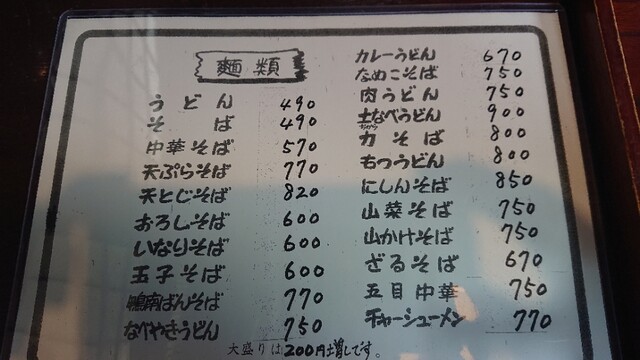 麺類
うどん 490
そば 490
中華そば 570
天ぷらそば 770
天とじそば 820
おろしそば 600
いなりそば 600
玉子そば 600
鴨南ばんそば 770
なべやきうどん 750
カレーうどん 670
なめこそば 750
肉うどん 750
土なべうどん 900
力そば 800
もつうどん 800
にしんそば 850
山菜そば 750
山かけそば 750
ざるそば 670
五目中華 750
チャーシューメン 770
大盛りは200円増しです。